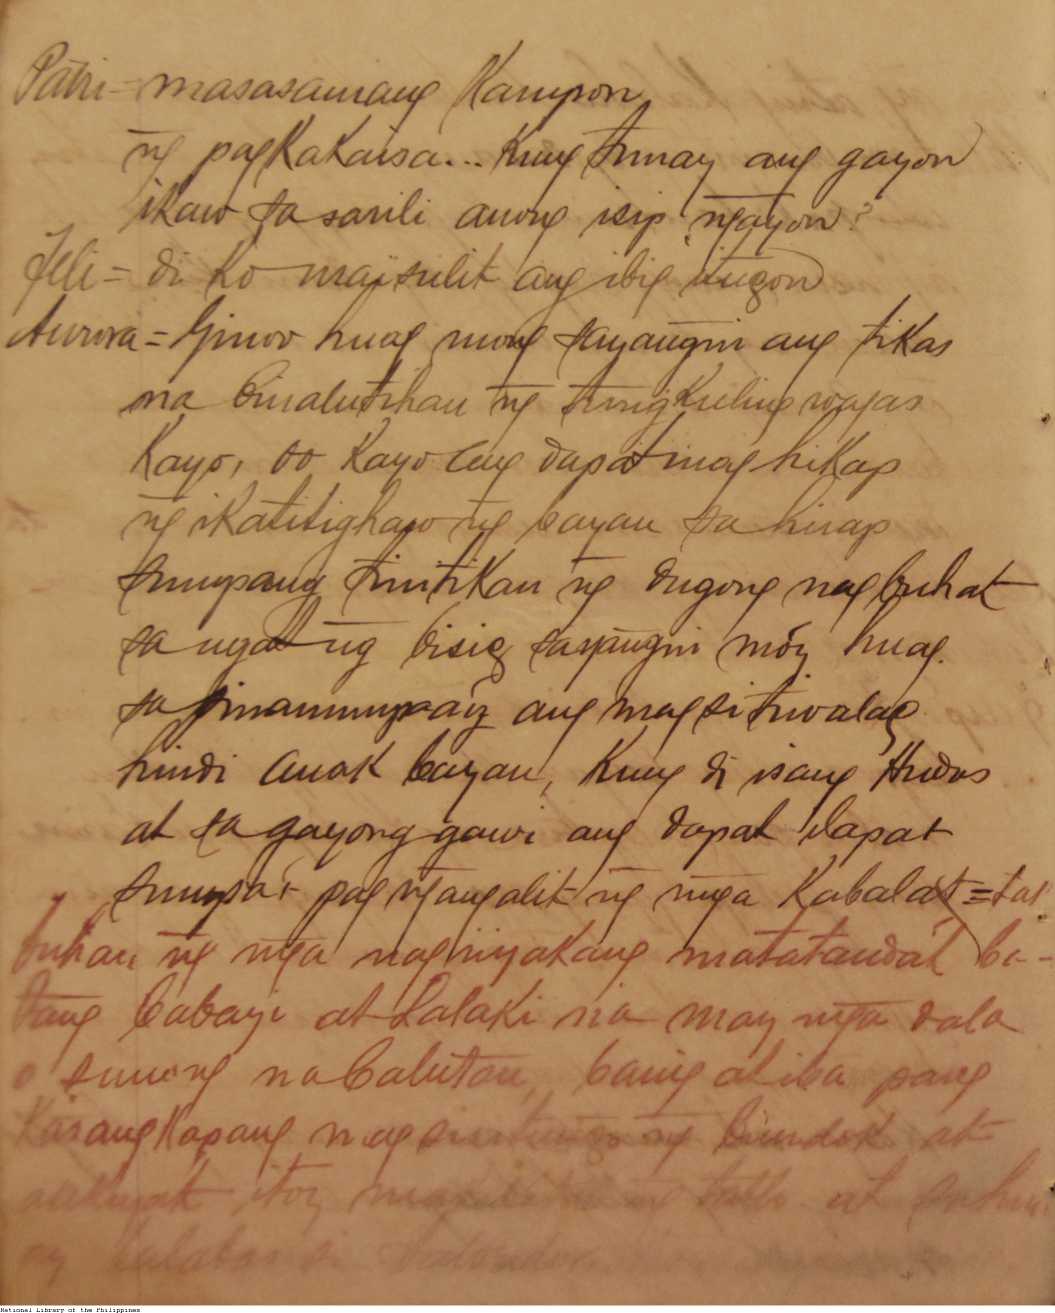 Patri = masasamang Kampon
ng̃ pagkakaisa... Kung tunay ang gayon
ikaw sa sarili anong isip ng̃ayon?
Feli = di ko maisulit ang ibig itugon
Aurora = Ginoo huag mong sayang̃in ang tikas
na binalutihan ng̃ tungkuling wagas
Kayo, oo Kayo ang dapat mag hikap
ng̃ ikatitighaw ng̃ bayan sa hirap
sumpang tinitikan ng̃ dugong nag buhat
sa ugat ng̃ bisig sayang̃in mo'y huag.
sa sinumpaa'y ang magsitiwalag
hindi anak bayan, Kung di isang Hudas
at sa gayong gawi ang dapat ilapat
sumpa't pag ng̃ang̃alit ng̃ mg̃a Kabalat =
buhan ng̃ mg̃a nagiiyakang matatanda't ba-
tang babayi at Lalaki na may mg̃a dala
o sunong na balutan, banig at iba pang
Kasangkapang ng̃ bundok at
ito'y at
ng̃
National Library of the Philippines